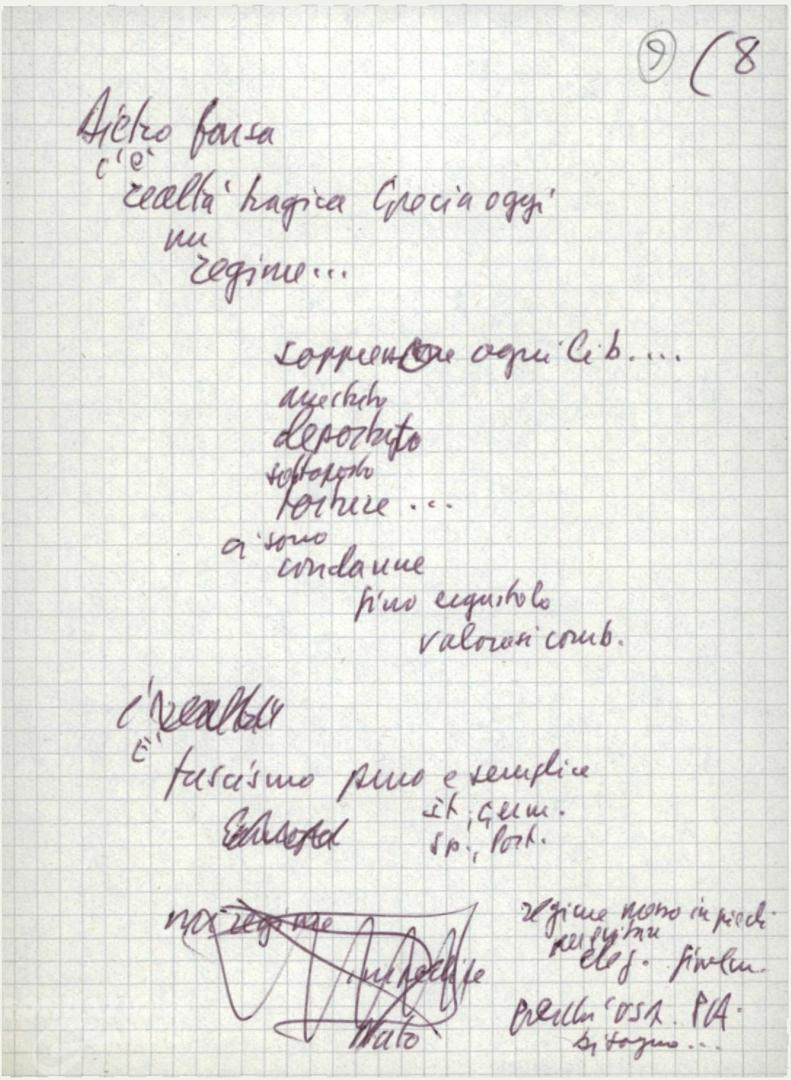 9 (8
dietro farsa
c'è
realtà tragica Grecia oggi
un
regime...
soppressione ogni lib....
arrestato
deportato
sottoposto
torture ...
ci sono
condanne
fino ergastolo
valorosi comb.
È
fascismo puro e semplice
it., Germ.
sp., Port.
regime
impedire
Nato
regime messo in piedi
per evitare
elez.
perché USA
bisogno...